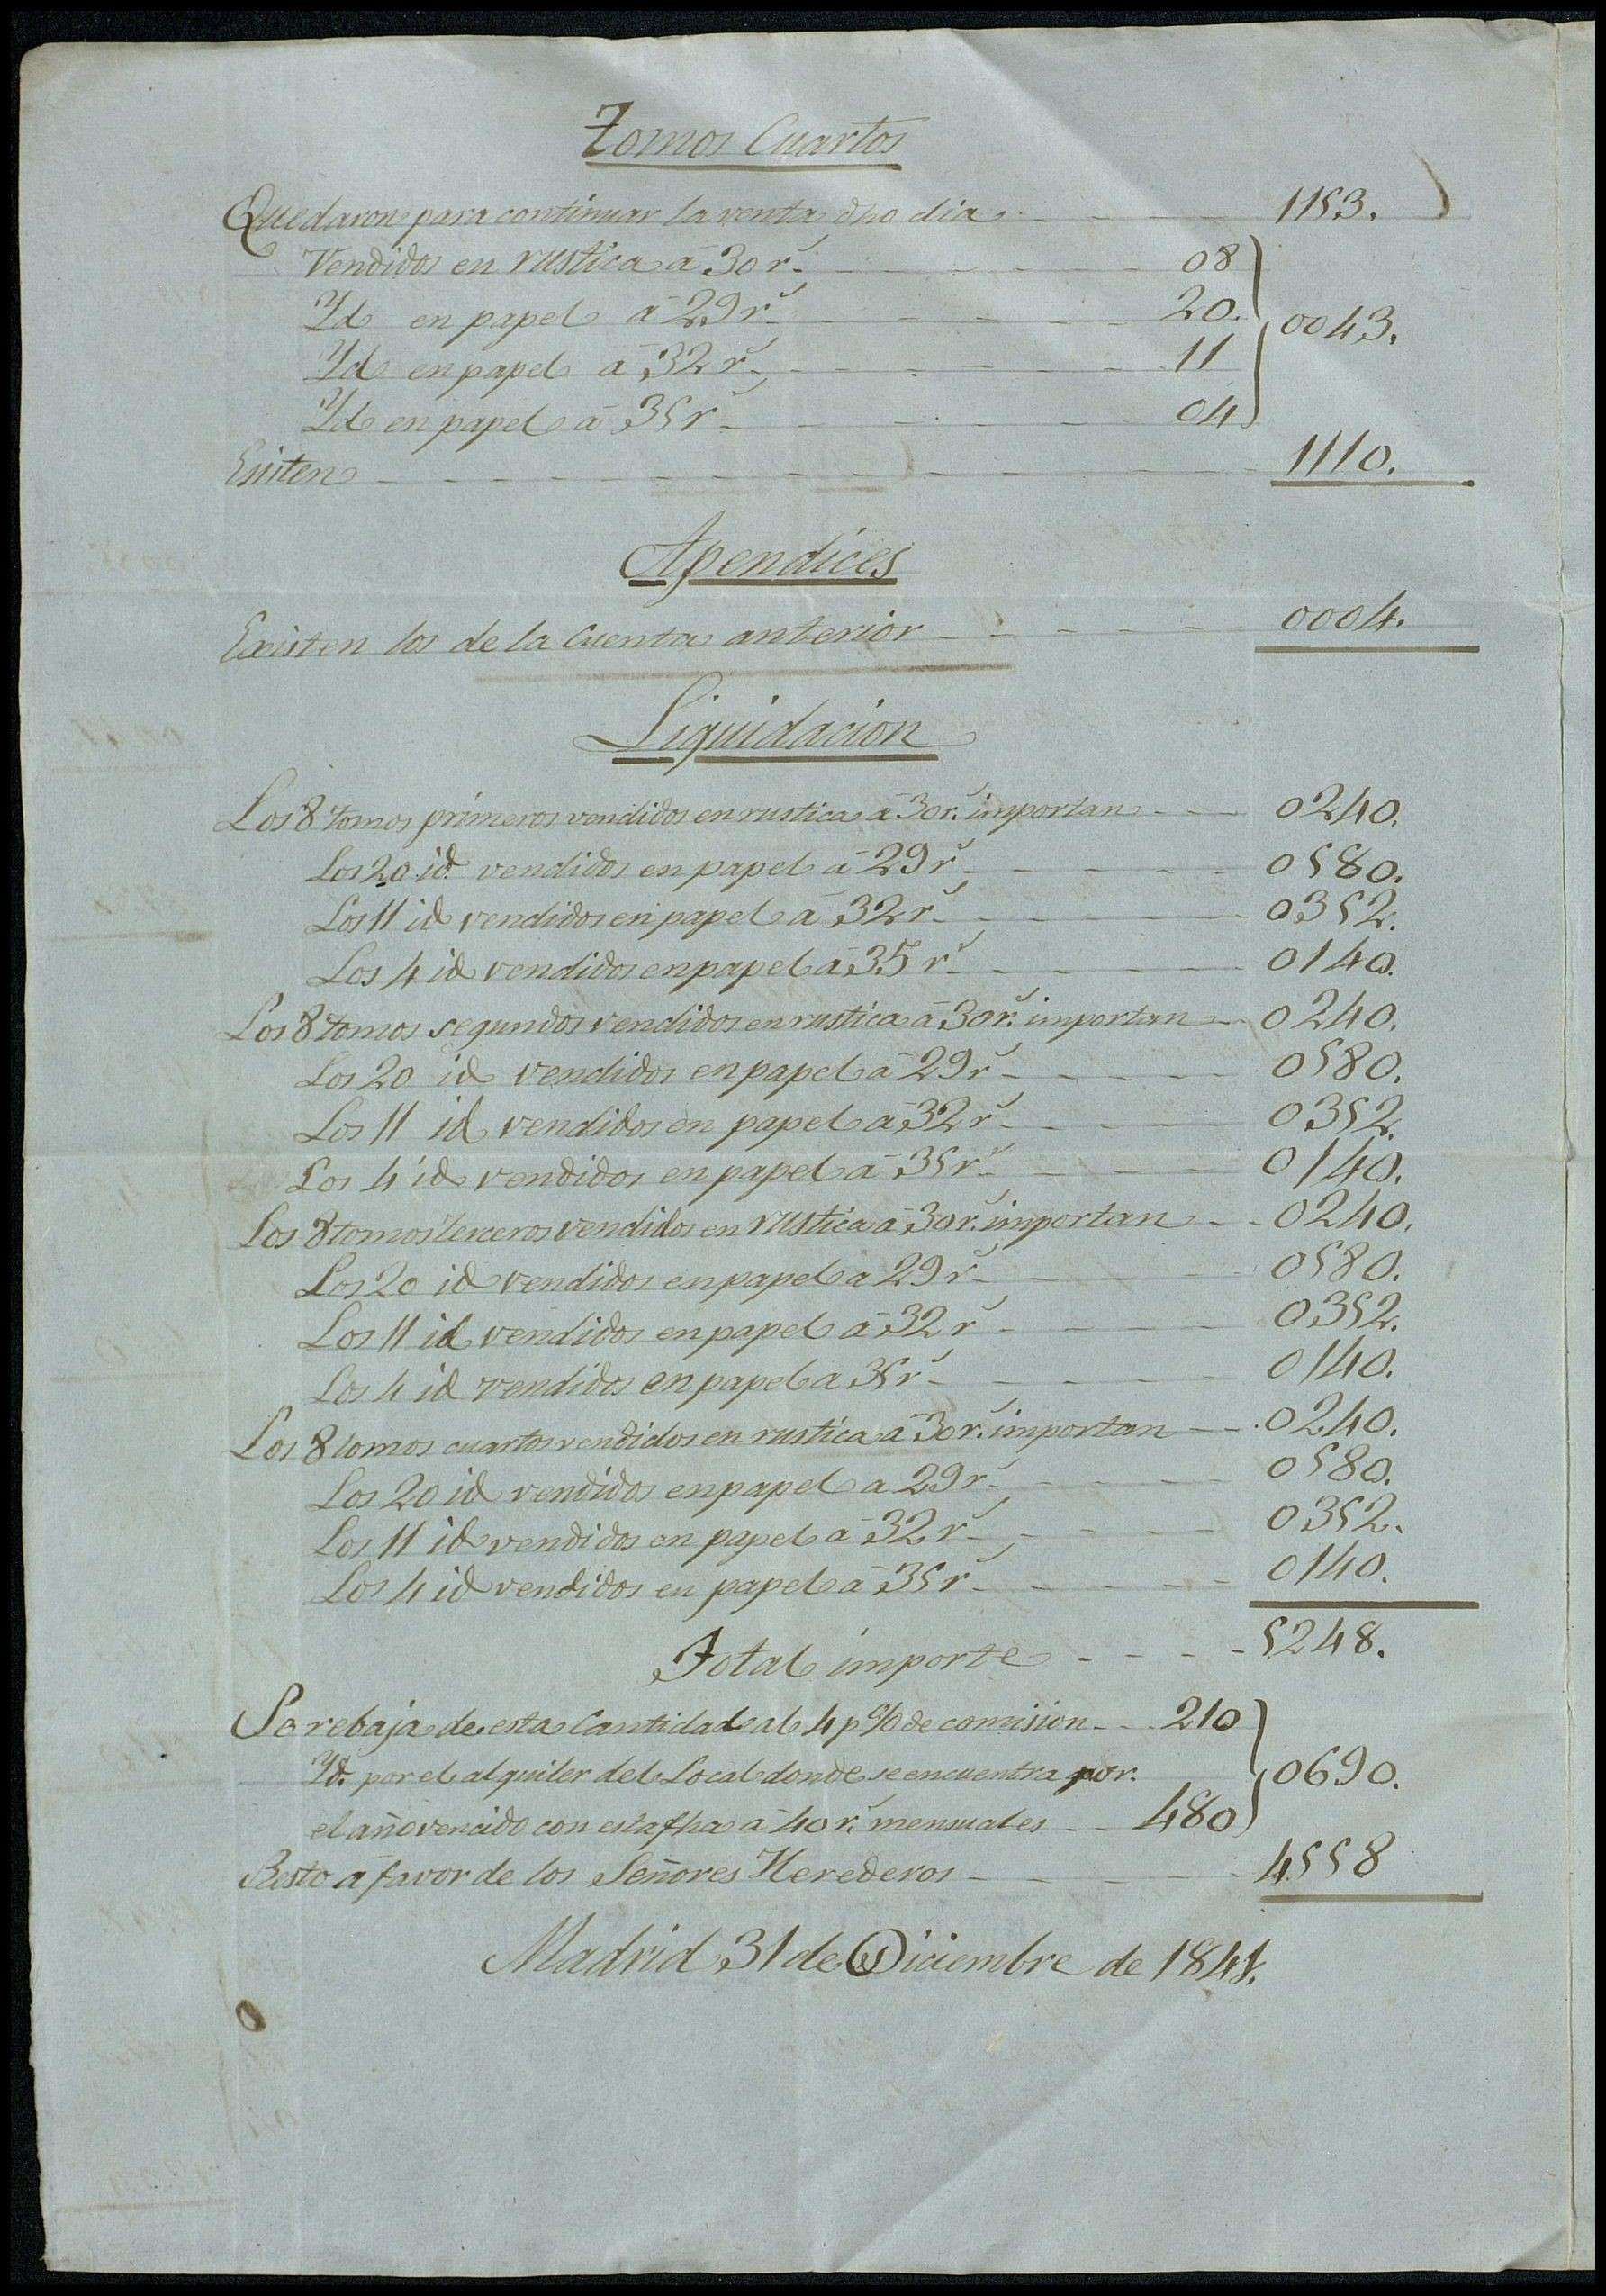 Tomos Cuartos
Quedaron para continuar la venta dho dia 1153.
Vendidos en rustica á 30 rˢ 08
Yd en papel á 29 rˢ 20. 0043.
Yd en papel á 32 rˢ 11
Yd en papel á 35 rˢ 04
Esisten 1110.
Apendices
Existen los de la Cuenta anterior 0004.
Liquidacion
Los 8 tomos primeros vendidos en rustica á 30 rˢ importan 0240.
Los 20 id. vendidos en papel á 29 rˢ 0580.
Los 11 id vendidos en papel á 32 rˢ 0352.
Los 4 id vendidos en papel á 35 rˢ 0140.
Los 8 tomos segundos vendidos en rustica á 30 rˢ importan 0240.
Los 20 id vendidos en papel á 29 rˢ 0580.
Los 11 id vendidos en papel á 32 rˢ 0352.
Los 4 id vendidos en papel á 35 rˢ 0140.
Los 8 tomos terceros vendidos en rustica á 30 rˢ importan 0240.
Los 20 id vendidos en papel a 29 rˢ 0580.
Los 11 id vendidos en papel á 32 rˢ 0352.
Los 4 id vendidos en papel a 35 rˢ 0140.
Los 8 tomos cuartos vendidos en rustica á 30 rˢ importan 0240.
Los 20 id vendidos en papel a 29 rˢ 0580.
Los 11 id vendidos en papel á 32 rˢ 0352.
Los 4 id vendidos en papel á 35 rˢ 0140.
Total importe 5248.
Se rebaja de esta Cantidad al 4 p% de comision 210
Yd. por el alquiler del Local donde se encuentra por. 0690.
el año vencido con esta fha á 40 rˢ mensuales 480
Resto á favor de los Señores Herederos 4558
Madrid 31 de Diciembre de 1841.